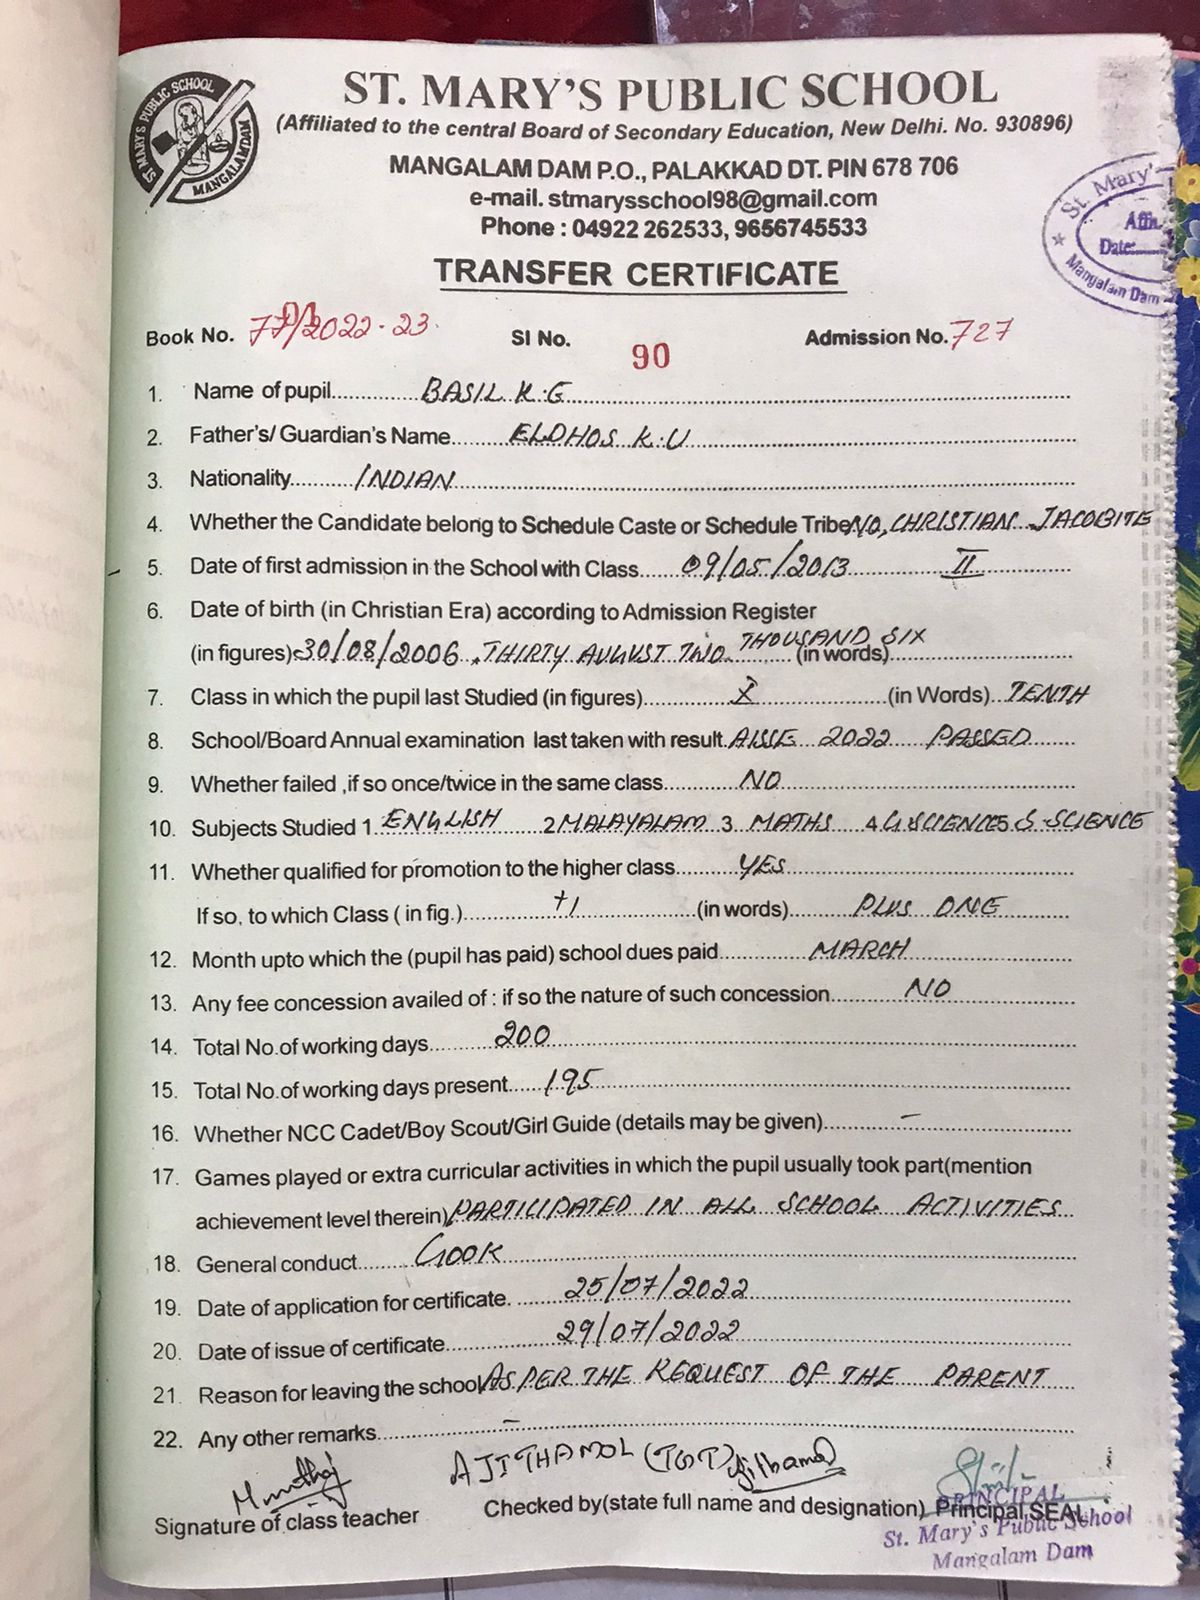 ST. MARY'S PUBLIC SCHOOL
(Affiliated to the central Board of Secondary Education, New Delhi. No. 930896)
MANGALAM DAM P.O., PALAKKAD DT. PIN 678 706
e-mail. stmarysschool98@gmail.com
Phone : 04922 262533, 9656745533
ST MARY'S PUBLIC SCHOOL
MANGALAMDAM
St. Mary's
Affn.
Date:
Mangalam Dam
TRANSFER CERTIFICATE
Book No. 2022-23 Sl No. 90 Admission No. 727
1. Name of pupil BASIL K.E
2. Father's/ Guardian's Name ELDHOS K.U
3. Nationality INDIAN
4. Whether the Candidate belong to Schedule Caste or Schedule Tribe NO, CHRISTIAN JACOBITE
5. Date of first admission in the School with Class 09/05/2013 II
6. Date of birth (in Christian Era) according to Admission Register
(in figures) 30/08/2006, THIRTY AUGUST TWO THOUSAND SIX (in words)
7. Class in which the pupil last Studied (in figures) X (in Words) TENTH
8. School/Board Annual examination last taken with result AISSE 2022 PASSED
9. Whether failed ,if so once/twice in the same class NO
10. Subjects Studied 1 ENGLISH 2 MALAYALAM 3 MATHS 4 G SCIENCE 5 S. SCIENCE
11. Whether qualified for promotion to the higher class YES
If so, to which Class ( in fig.) +1 (in words) PLUS ONE
12. Month upto which the (pupil has paid) school dues paid MARCH
13. Any fee concession availed of : if so the nature of such concession NO
14. Total No.of working days 200
15. Total No.of working days present 195
16. Whether NCC Cadet/Boy Scout/Girl Guide (details may be given) -
17. Games played or extra curricular activities in which the pupil usually took part(mention
achievement level therein) PARTICIPATED IN ALL SCHOOL ACTIVITIES
18. General conduct GOOK
19. Date of application for certificate. 25/07/2022
20. Date of issue of certificate 29/07/2022
21. Reason for leaving the school AS PER THE REQUEST OF THE PARENT
22. Any other remarks -
AJITHAMOL (TGT)
Signature of class teacher Checked by(state full name and designation) Principal SEAL
PRINCIPAL
St. Mary's Public School
Mangalam Dam